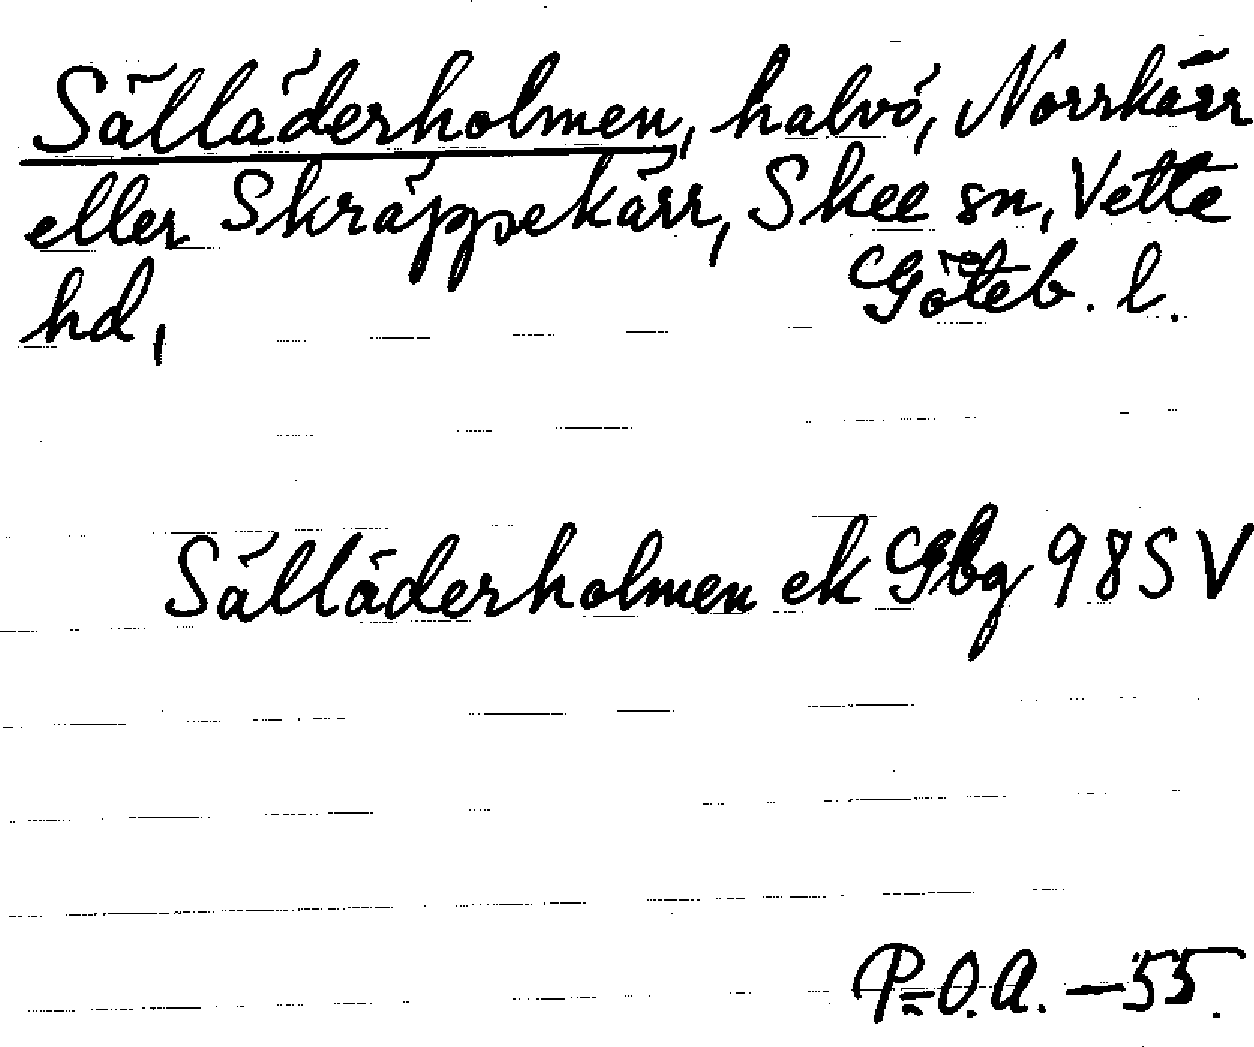 Sälläderholmen, halvö, Norrkärr
eller Skräppekärr, Skee sn, Vette
hd, Göteb. l.
Sälläderholmen ek Gbg 98 SV
P.=O.A. –55.